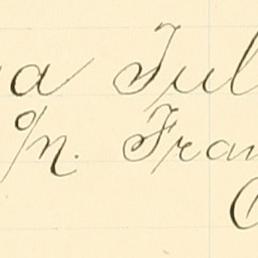 a Tul
%n. Fran